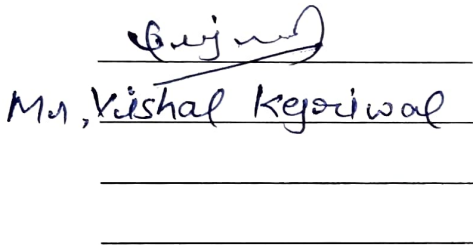 Mr, Vishal Kejoriwal